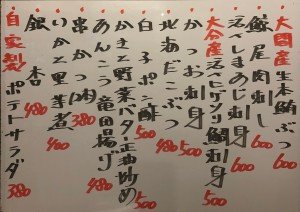 大間産生本鮪ぶつ 600
鮫尾肉刺し 600
えべしまあじ刺身 600
大分産えべヒゲソリ鯛刺身 500
かつお刺身 500
北あだこぶつ 480
白子ポン酢 500
かきと野菜バター正油炒め 500
あんこう竜田揚げ 480
串かつ(肉) 380
いかと里芋煮 400
銀杏 480
自家製ポテトサラダ 380